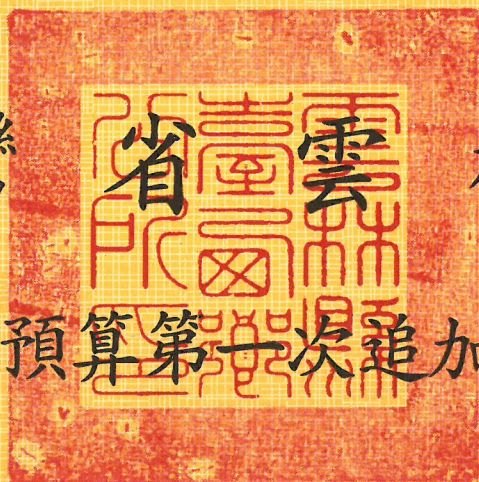 省雲
預算第一次追加
雲林縣
臺西鄉
公所印